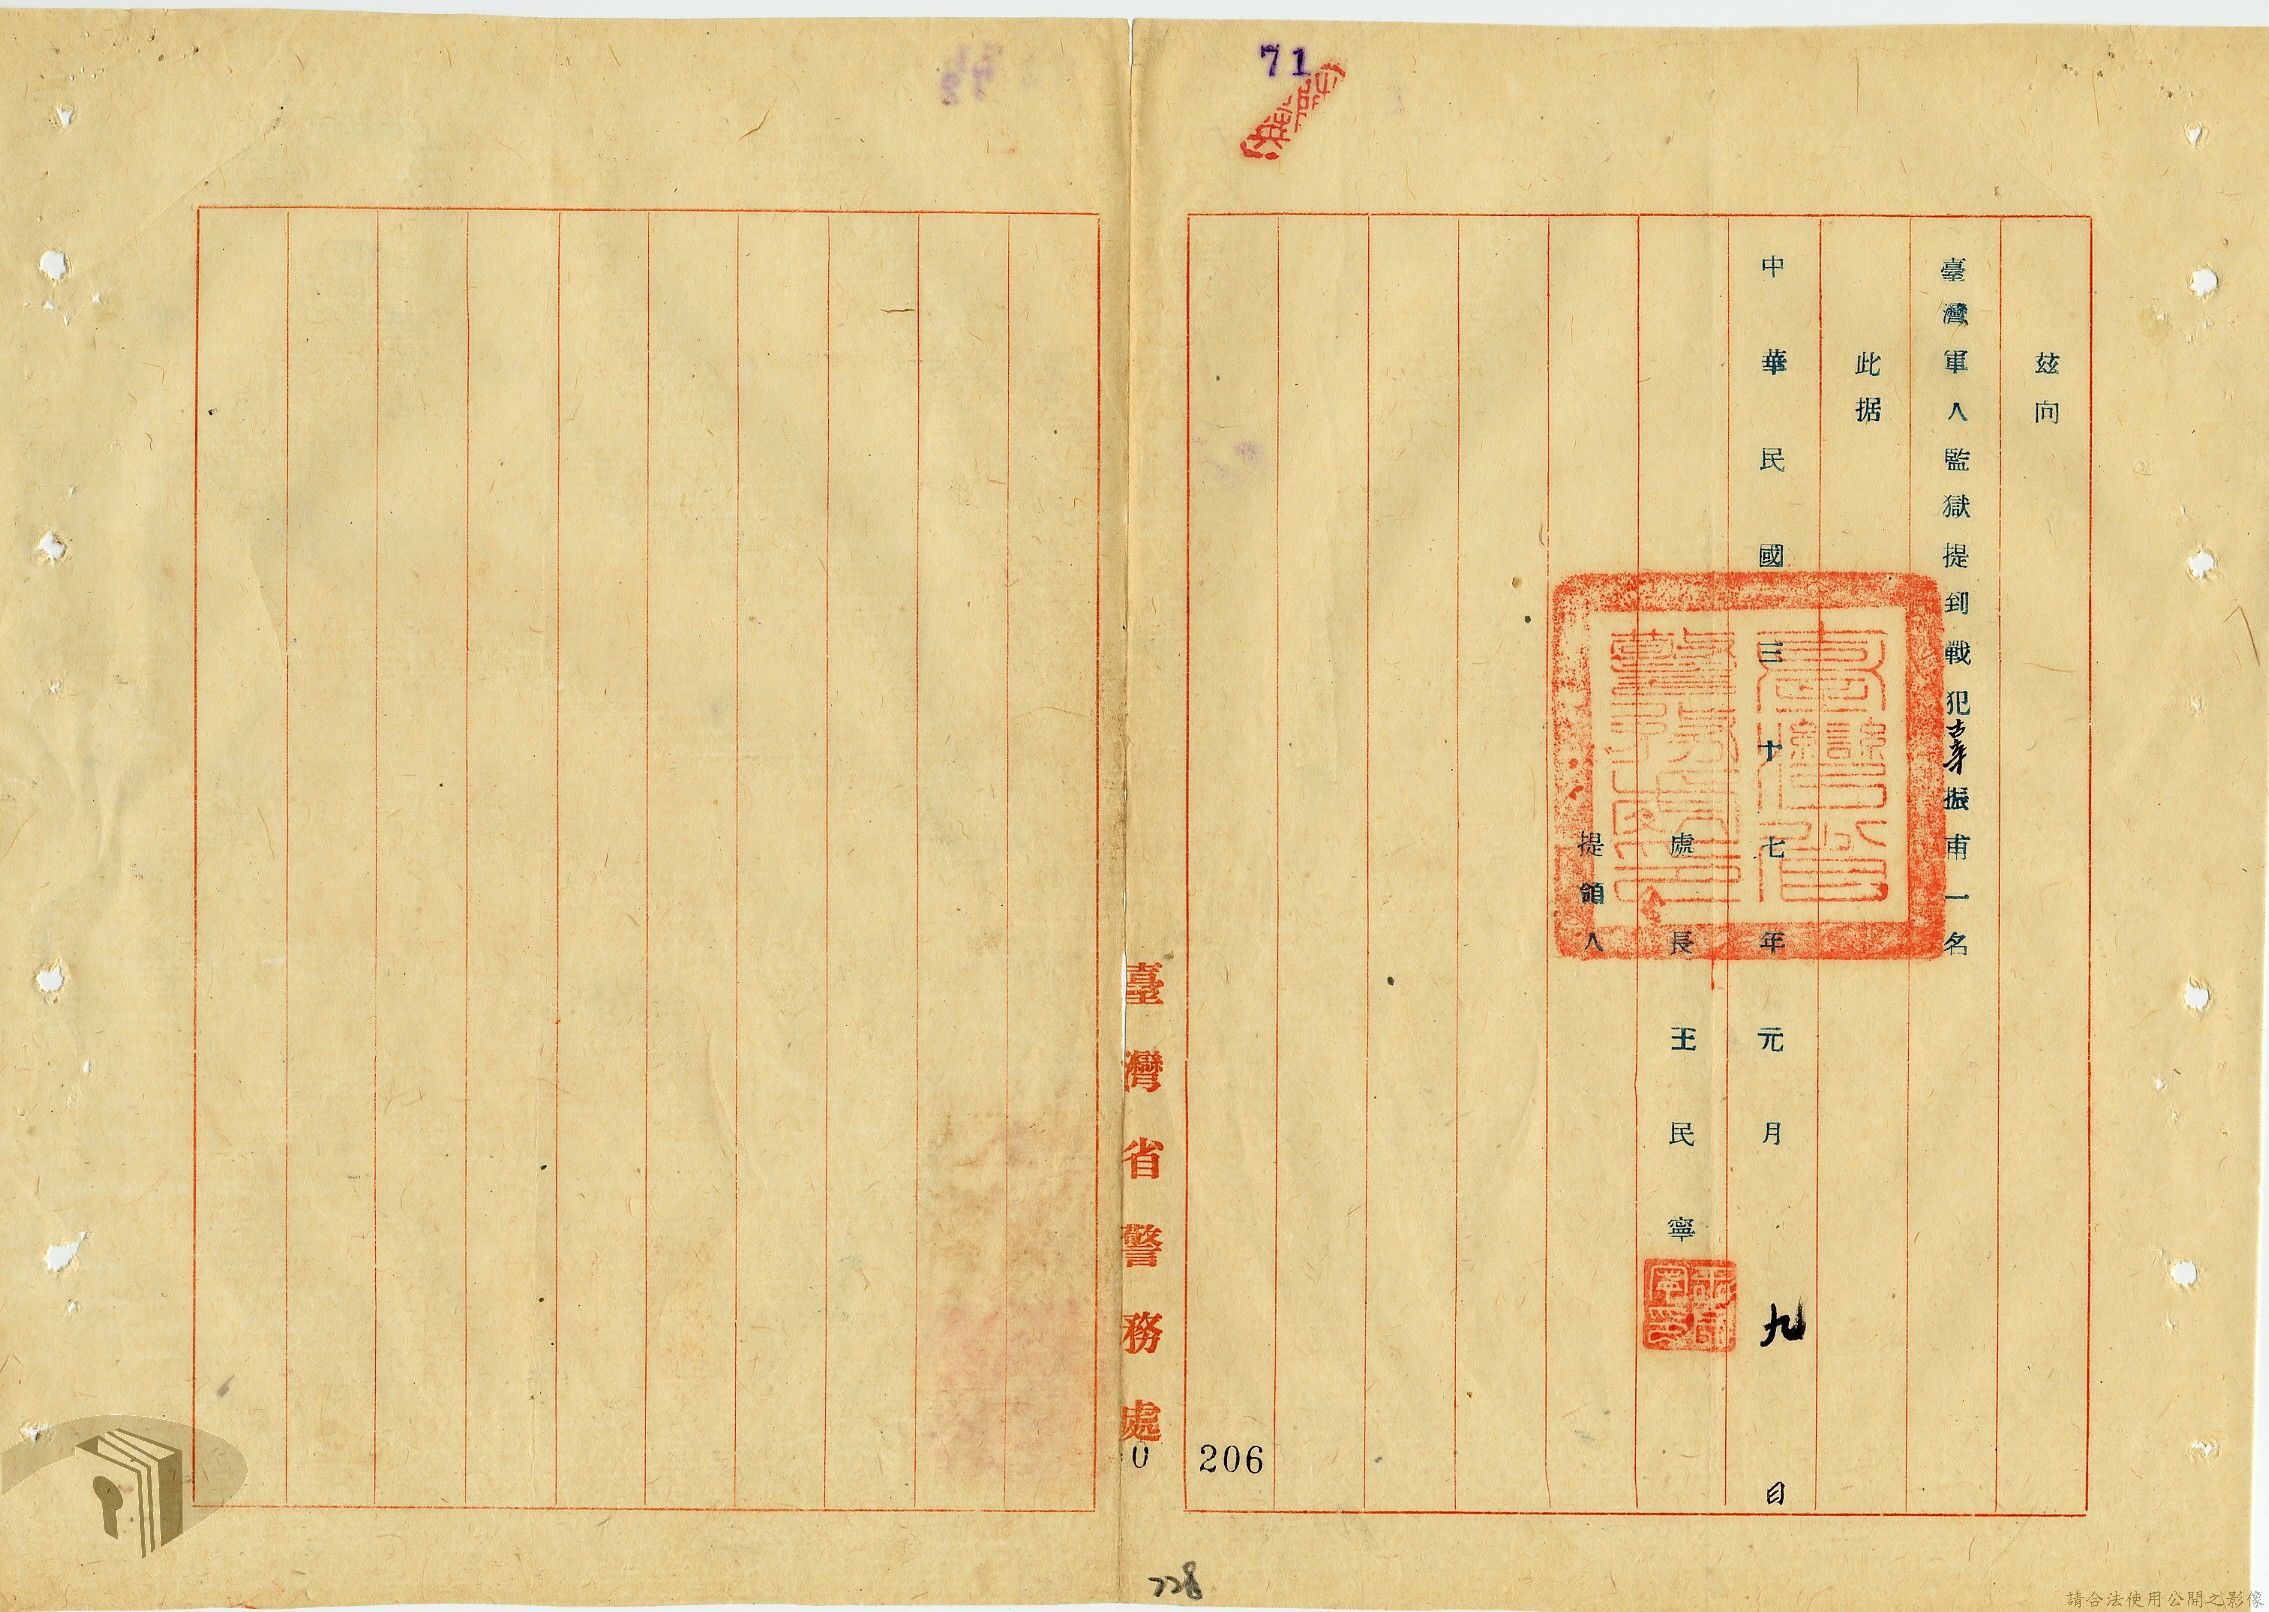 71
茲向
臺灣軍人監獄提到戰犯辜振甫一名
此据
中華民國三十七年元月九日
處長王民寧
王民寧印
提領人
206
臺灣省警務處
0
228
請合法使用公開之影像